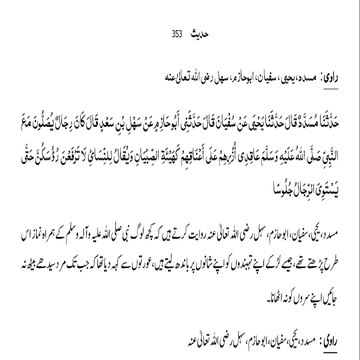 حدیث 353
راوی: مسدد، یحیی، سفیان، ابوحازم، سہل رضی اللہ تعالیٰ عنہ
حَدَّثَنَا مُسَدَّدٌ قَالَ حَدَّثَنَا يَحْيَى عَنْ سُفْيَانَ قَالَ حَدَّثَنِي أَبُو حَازِمٍ عَنْ سَهْلِ بْنِ سَعْدٍ قَالَ كَانَ رِجَالٌ يُصَلُّونَ مَعَ
النَّبِيِّ صَلَّى اللهُ عَلَيْهِ وَسَلَّمَ عَاقِدِي أُزْرِهِمْ عَلَى أَعْنَاقِهِمْ كَهَيْئَةِ الصِّبْيَانِ وَيُقَالُ لِلنِّسَائِ لَا تَرْفَعْنَ رُؤُسَكُنَّ حَتَّى
يَسْتَوِيَ الرِّجَالُ جُلُوسًا
مسدد، یحیی، سفیان، ابوحازم، سہل رضی اللہ تعالیٰ عنہ روایت کرتے ہیں کہ کچھ لوگ نبی صلی اللہ علیہ وآلہ وسلم کے ہمراہ نماز اس
طرح پڑھتے تھے، جیسے لڑکے اپنے تہبندوں کو اپنے شانوں پر باندھ لیتے ہیں، عورتوں سے کہہ دیا تھا کہ جب تک مرد سیدھے بیٹھ نہ
جائیں اپنے سروں کو نہ اٹھانا۔
راوی: مسدد، یحیی، سفیان، ابوحازم، سہل رضی اللہ تعالیٰ عنہ